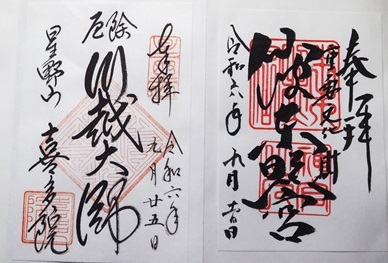 奉拝
重要文化財
仙波東照宮
令和六年 九月 日
奉拝
令和六年
九月廿五日
厄除
川越大師
星野山
喜多院